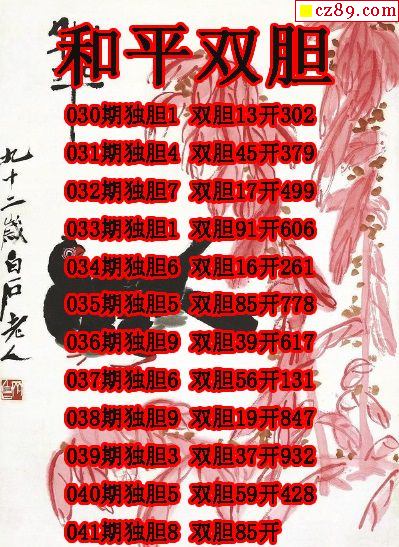 cz89.com
和平双胆
030期独胆1 双胆13开302
031期独胆4 双胆45开379
032期独胆7 双胆17开499
033期独胆1 双胆91开606
034期独胆6 双胆16开261
035期独胆5 双胆85开778
036期独胆9 双胆39开617
037期独胆6 双胆56开131
038期独胆9 双胆19开847
039期独胆3 双胆37开932
040期独胆5 双胆59开428
041期独胆8 双胆85开
九十二岁白石老人